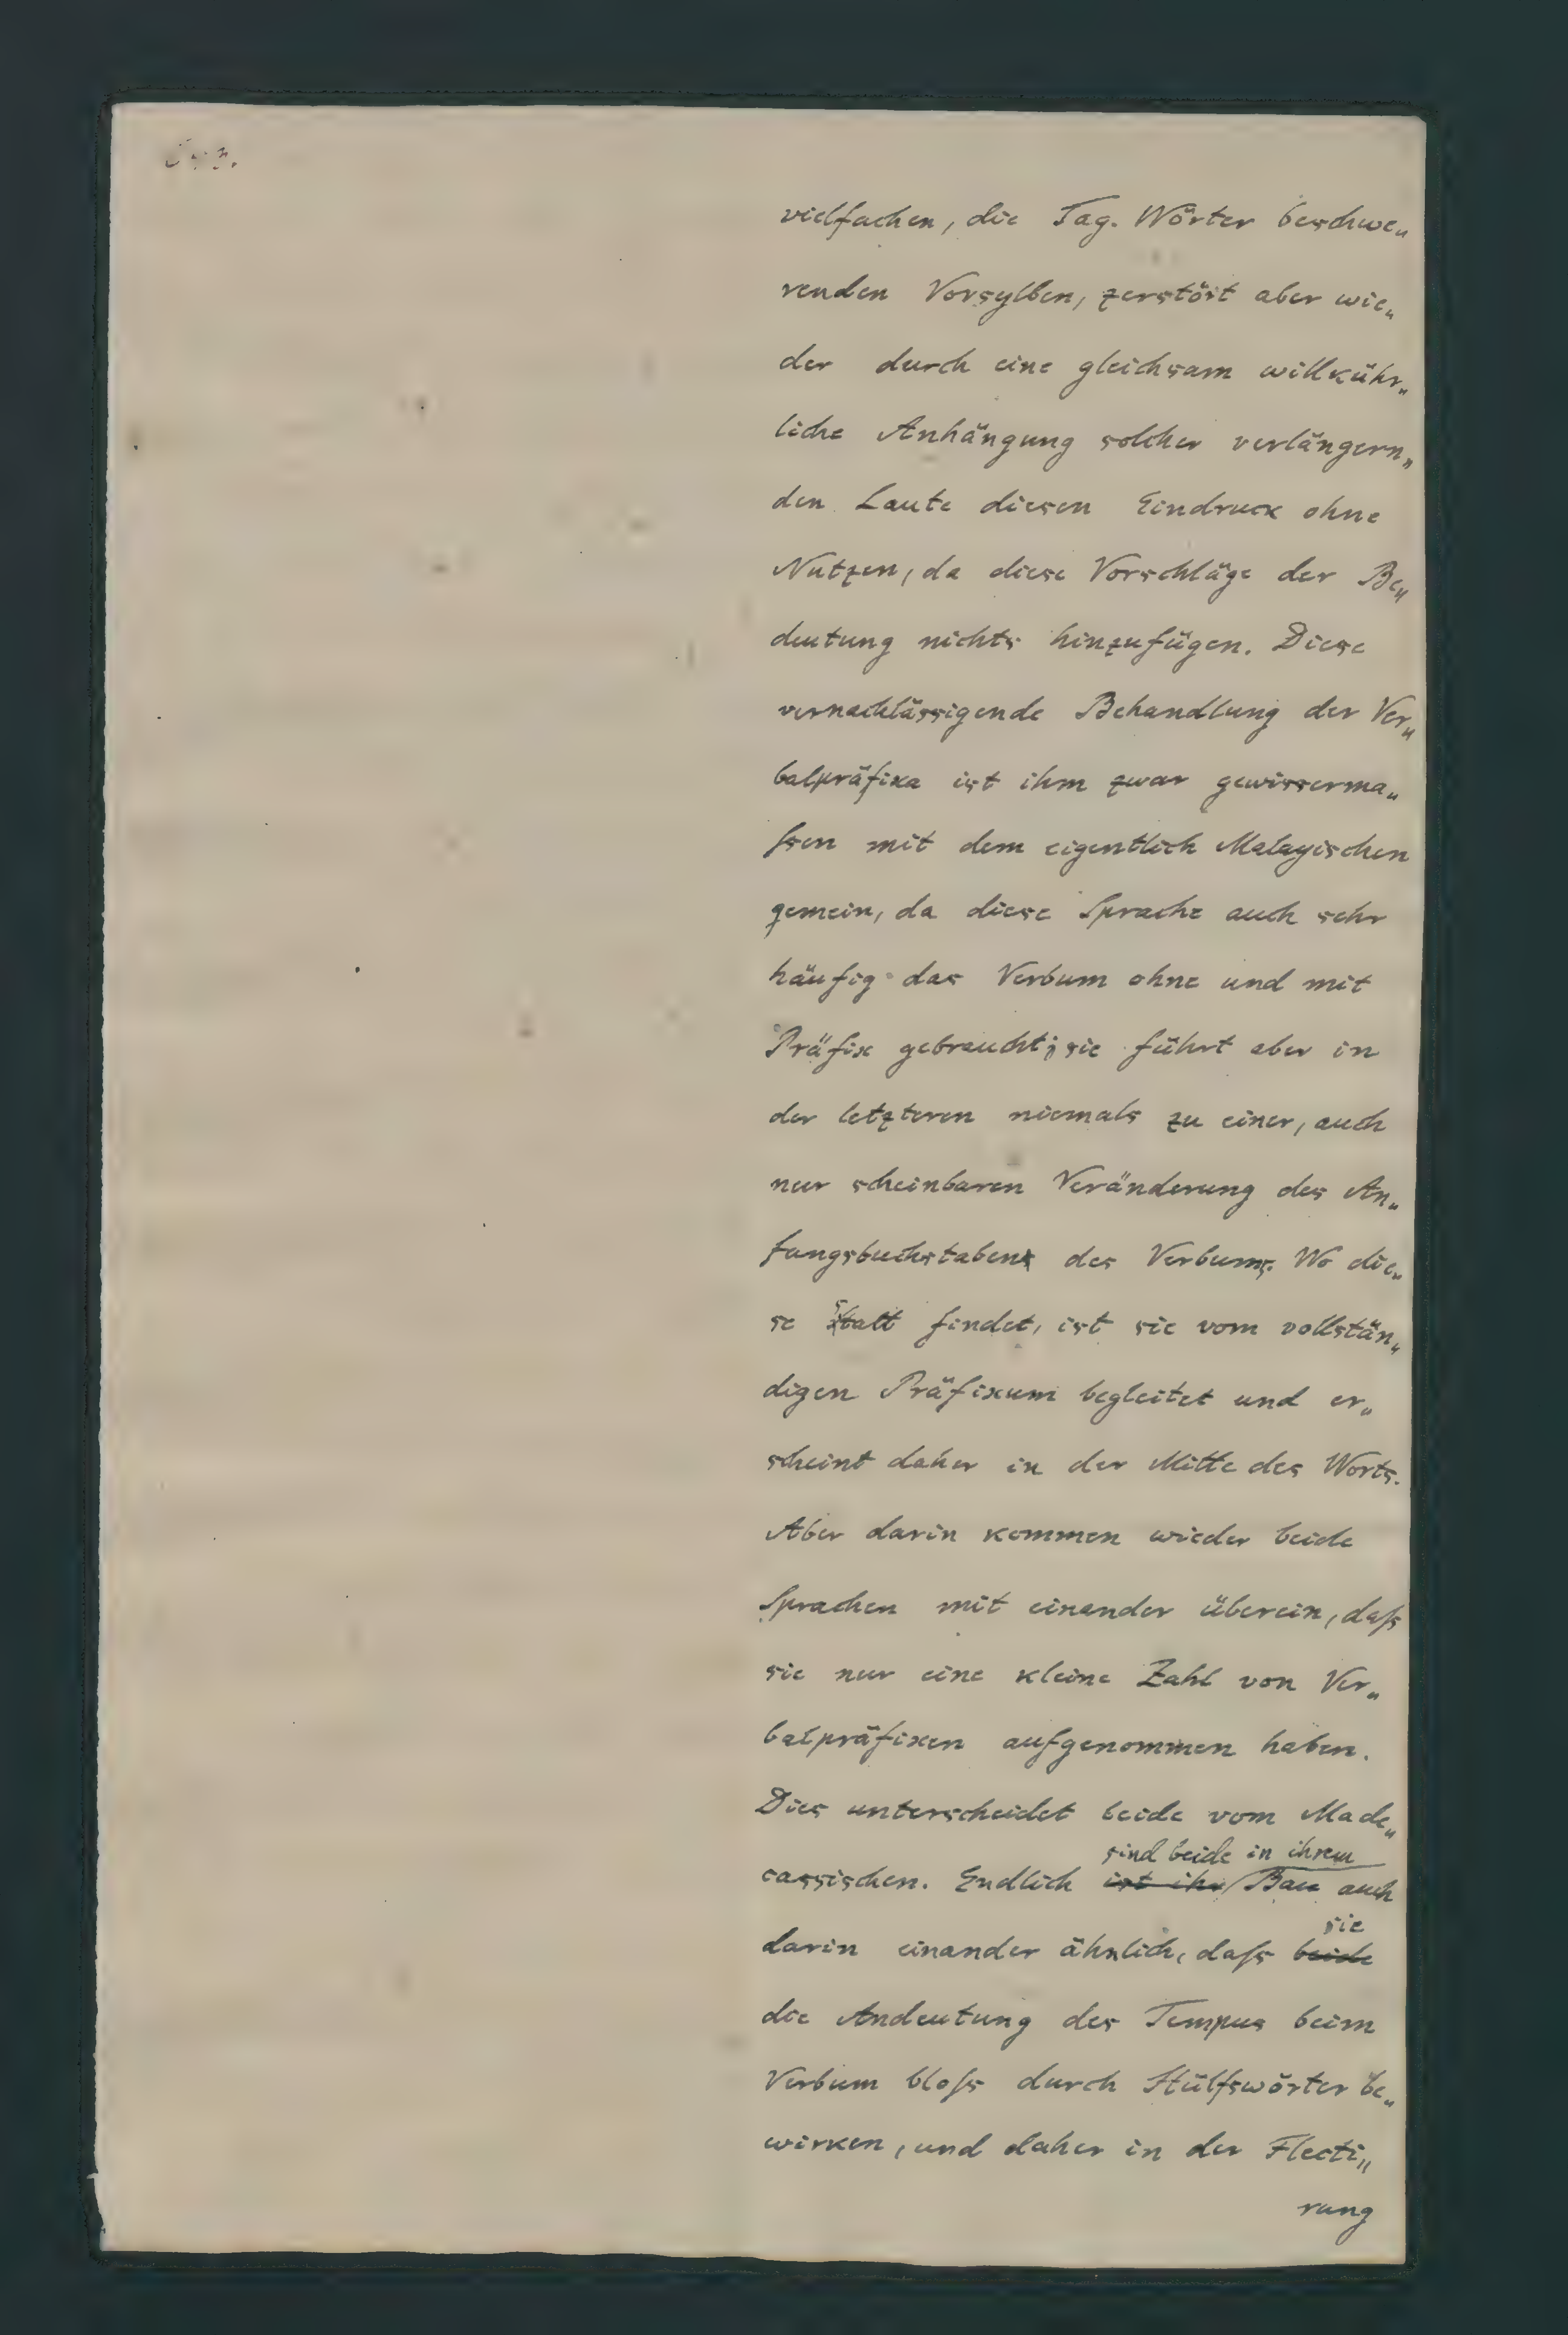 vielfachen, die Tag. Wörter beschwe„
renden Vorsylben, zerstört aber wie„
der durch eine gleichsam willkühr„
liche Anhängung solcher verlängern„
den Laute diesen Eindruck ohne
Nutzen, da diese Vorschläge der Be„
deutung nichts hinzufügen. Diese
vernachlässigende Behandlung der Ver„
balpräfixa ist ihm zwar gewisserma„
ſsen mit dem eigentlich Malayischen
gemein, da diese Sprache auch sehr
häufig das Verbum ohne und mit
Präfix gebraucht; sie führt aber in
der letzteren niemals zu einer, auch
nur scheinbaren Veränderung des An„
fangsbuchstabens des Verbums. Wo die„
se statt findet, ist sie vom vollstän„
digen Präfixum begleitet und er„
scheint daher in der Mitte des Worts.
Aber darin kommen wieder beide
Sprachen mit einander überein, daſs
sie nur eine kleine Zahl von Ver„
balpräfixen aufgenommen haben.
Dies unterscheidet beide vom Made„
sind beide in ihrem
cassischen. Endlich ist ihr Bau auch
sie
darin einander ähnlich, daſs beide
die Andeutung des Tempus beim
Verbum bloſs durch Hülfswörter be„
wirken, und daher in der Flecti„
rung